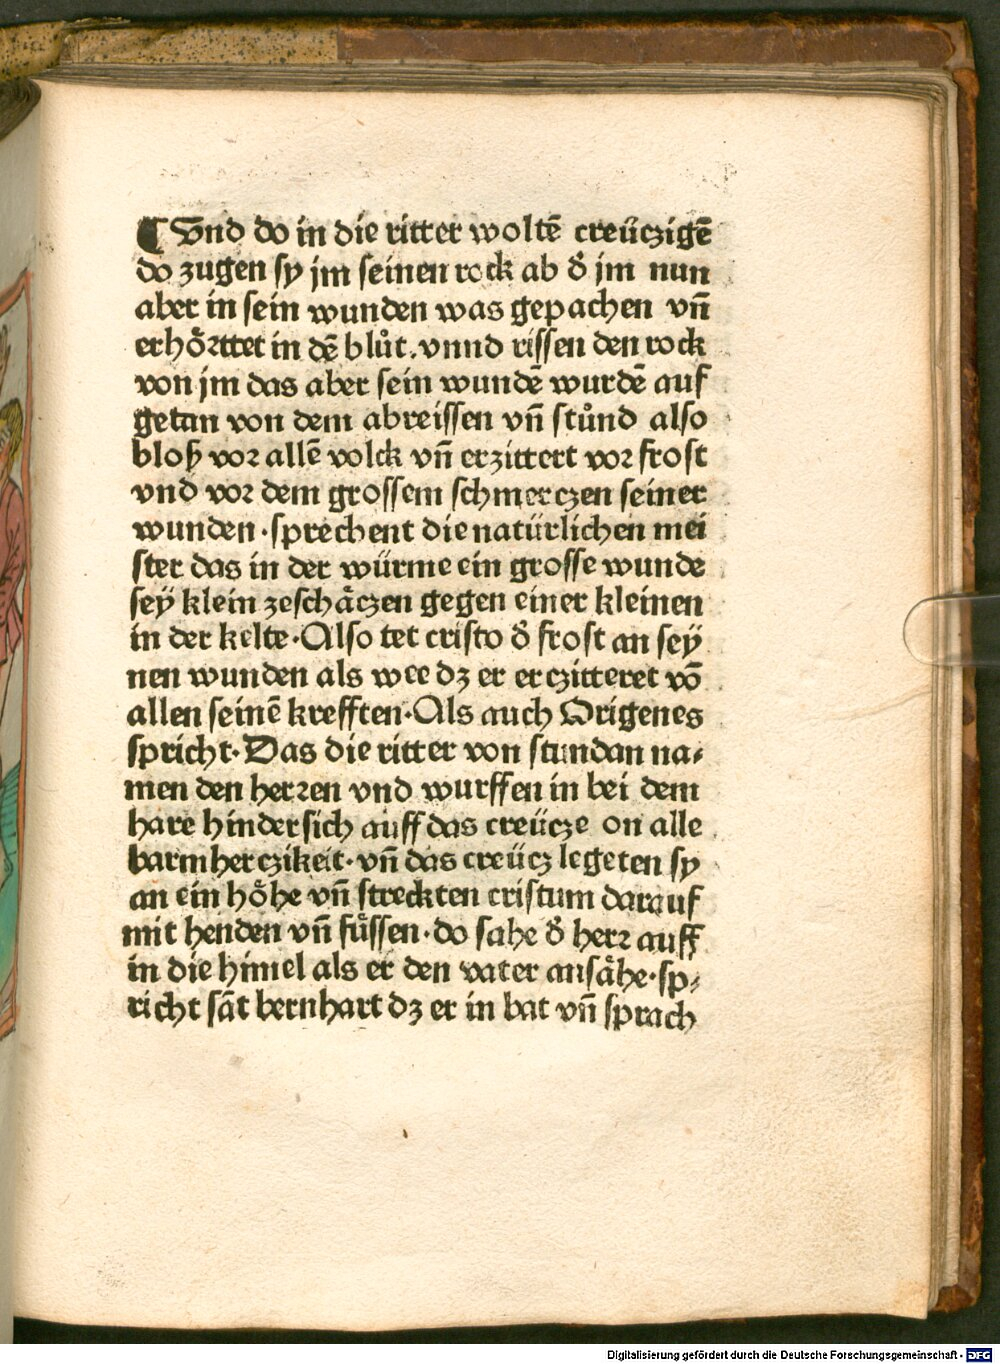 ¶ Vnd do in die ritter woltē creüczigē
do zugen sy jm seinen rock ab d̕ jm nun
aber in sein wunden was gepachen vn̄
erhoͤrttet in dē bluͦt. vnnd rissen den rock
von jm das aber sein wundē wurdē auf
getan von dem abreissen vn̄ stuͦnd also
bloß vor allē volck vn̄ erzittert vor frost
vnd vor dem grossem schmerczen seiner
wunden · sprechent die natürlichen mei
ster das in der würme ein grosse wunde
seÿ klein zeschaͤczen gegen einer kleinen
in der kelte · Also tet cristo d̕ frost an seÿ
nen wunden als wee dz er erczitteret vō
allen seinē krefften · Als auch Origenes
spricht · Das die ritter von stundan na⸗
men den herren vnd wurffen in bei dem
hare hindersich auff das creücze on alle
barmherczikeit · vn̄ das creücz legeten sy
an ein hoͤhe vn̄ streckten cristum darauf
mit henden vn̄ fuͤssen · do sahe d̕ herr auff
in die himel als er den vater ansaͤhe · sp⸗
richt sāt bernhart dz er in bat vn̄ sprach
Digitalisierung gefördert durch die Deutsche Forschungsgemeinschaft - DFG